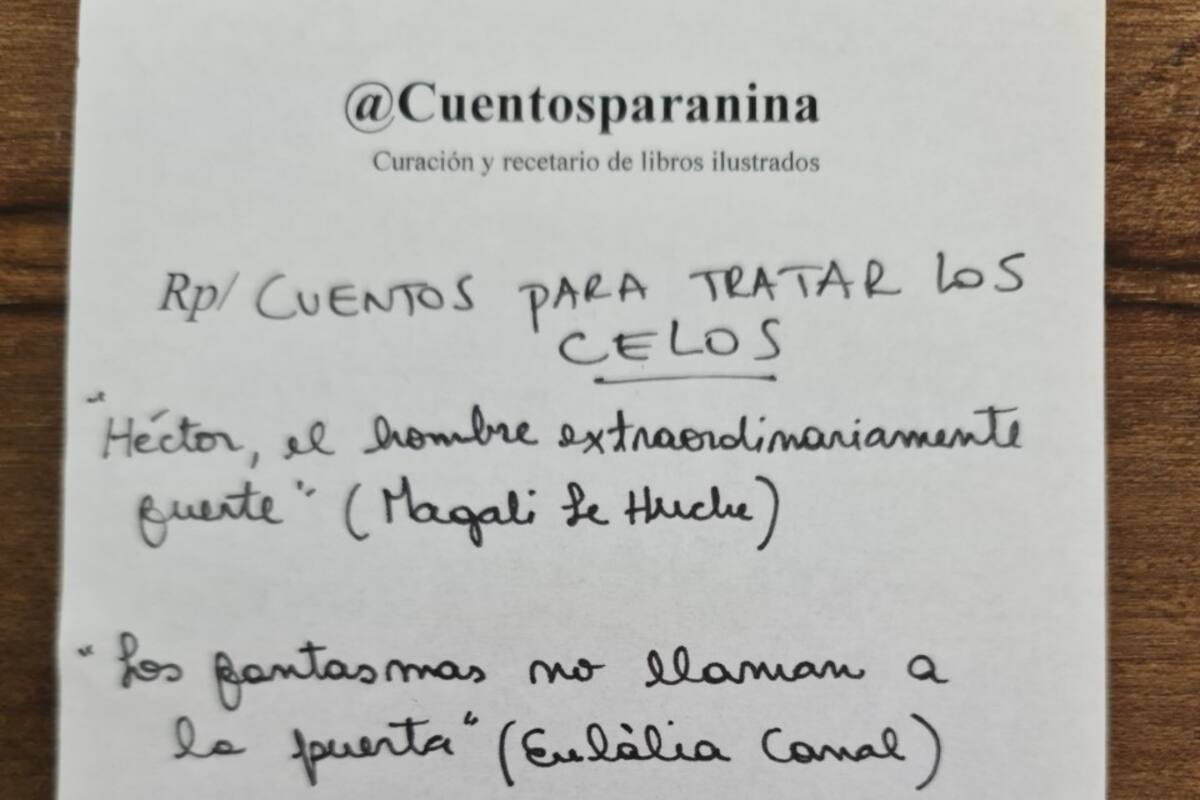 @Cuentosparanina
Curación y recetario de libros ilustrados
Rp/ CUENTOS PARA TRATAR LOS
CELOS
"Héctor, el hombre extraordinariamente
fuerte" (Magali Le Huche)
"Los fantasmas no llaman a
la puerta" (Eulàlia Canal)